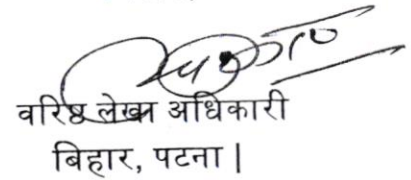 वरिष्ठ लेखा अधिकारी
बिहार, पटना |